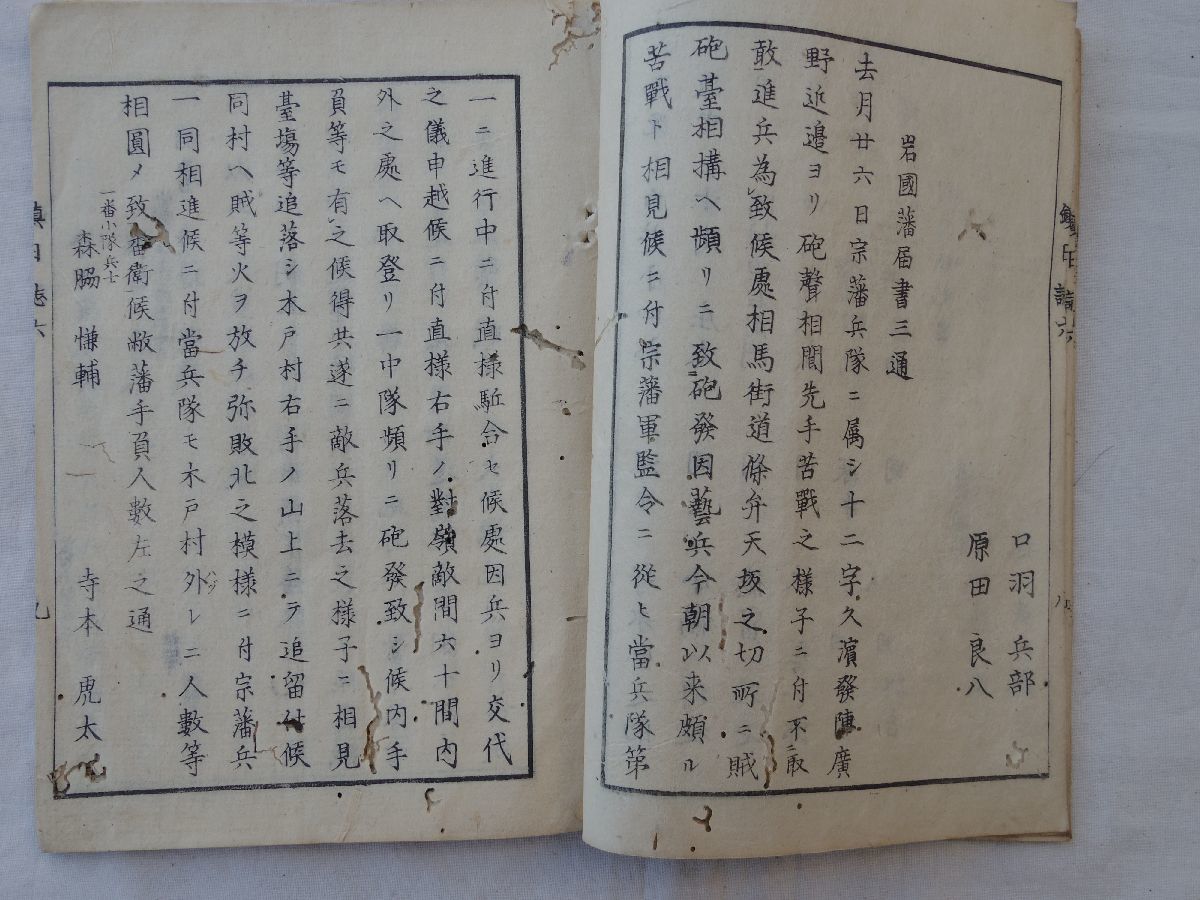 口羽兵部
原田良八
岩國藩届書三通
去月廿六日宗藩兵隊ニ属シ十二字久濱發陣廣
野近邉ヨリ砲聲相聞先手苦戰之様子ニ付不取
敢進兵為致候處相馬街道條弁天坂之切所ニ賊
砲臺相構ヘ頻リニ致砲發因藝兵今朝以来頗ル
苦戰ト相見候ニ付宗藩軍監令ニ從ヒ當兵隊第
一ニ進行中ニ付直様駈合セ候處因兵ヨリ交代
之儀申越候ニ付直様右手ノ對嶺敵間六十間内
外之處ヘ取登リ一中隊頻リニ砲發致シ候内手
負等モ有之候得共遂ニ敵兵落去之様子ニ相見
臺塲等追落シ木戸村右手ノ山上ニテ追留付候
同村ヘ賊等火ヲ放チ弥敗北之模様ニ付宗藩兵
一同相進候ニ付當兵隊モ木戸村外レニ人數等
相圓メ致番衛候敝藩手負人數左之通
一番小隊兵士
森脇慊輔　寺本虎太
鎮日誌六
九